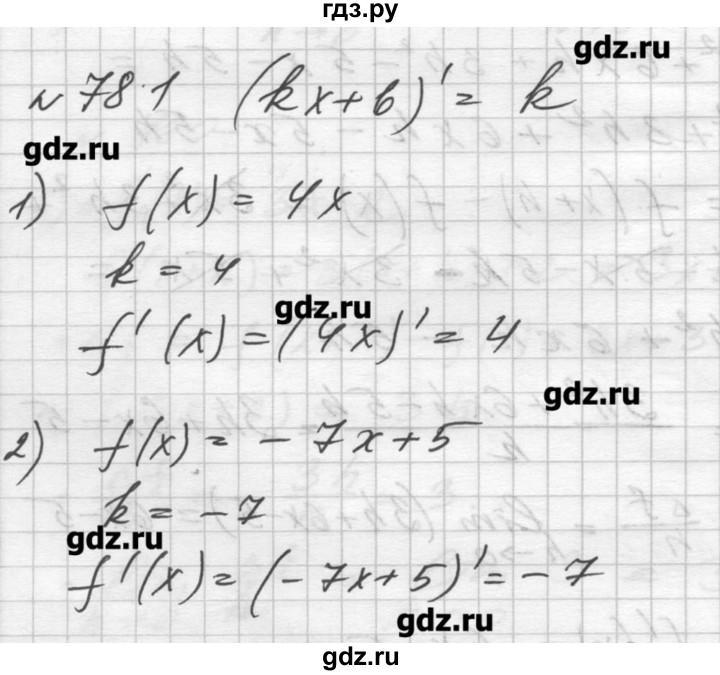 гдз.ру
gdz.ru
№ 781 (kx+b)' = k
gdz.ru
1) f(x) = 4x
k = 4
gdz.ru
f'(x) = (4x)' = 4
gdz.ru
2) f(x) = -7x+5
k = -7
gdz.ru
f'(x) = (-7x+5)' = -7
gdz.ru
gdz.ru